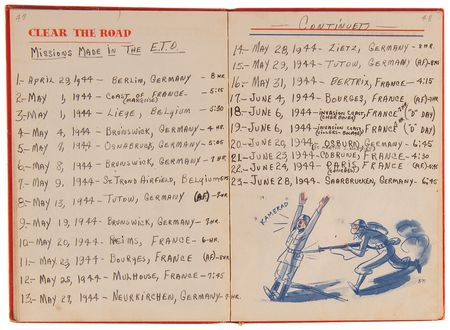 47
CLEAR THE ROAD
MISSIONS MADE IN THE E.T.O.
1- APRIL 29, 1944 - BERLIN, GERMANY - 8 HR
2- MAY 1, 1944 - COAST OF FRANCE - 5:15
(MARQUISE)
3- MAY 1, 1944 - LIEGE, BELGIUM - 5:30
4- MAY 4, 1944 - BRUNSWICK, GERMANY - 4 HR.
5- MAY 7, 1944 - OSNABRUCK, GERMANY - 5:15
6- MAY 8, 1944 - BRUNSWICK, GERMANY - 7 HR
7- MAY 9, 1944 - ST. TROND AIRFIELD, BELGIUM
8- MAY 13, 1944 - TUTOW, GERMANY (AF)
9- MAY 19, 1944 - BRUNSWICK, GERMANY - 7 HR.
10- MAY 20, 1944 - REIMS, FRANCE - 6 HR.
11- MAY 23, 1944 - BOURGES, FRANCE (AF)
12- MAY 25, 1944 - MULHOUSE, FRANCE - 7:45
13- MAY 27, 1944 - NEUNKIRCHEN, GERMANY - 7 HR.
48
CONTINUED
14- MAY 28, 1944 - LIETZ, GERMANY - 8 HR.
15- MAY 29, 1944 - TUTOW, GERMANY (AF)
16- MAY 31, 1944 - BERTRIX, FRANCE - 6:15
17- JUNE 4, 1944 - BOURGES, FRANCE, (AF)
18- JUNE 6, 1944 - INVASION COAST, FRANCE "D" DAY
19- JUNE 6, 1944 - INVASION COAST, FRANCE "D" DAY)
20- JUNE 20, 1944 - OSBURG, GERMANY - 6:45
21- JUNE 23, 1944 - COBRUNE, FRANCE - 4:30
22- JUNE 24, 1944 - PARIS, FRANCE (AF) - 6:15
23- JUNE 28, 1944 - SAARBRUKEN, GERMANY - 6:45
"KAMERAD"